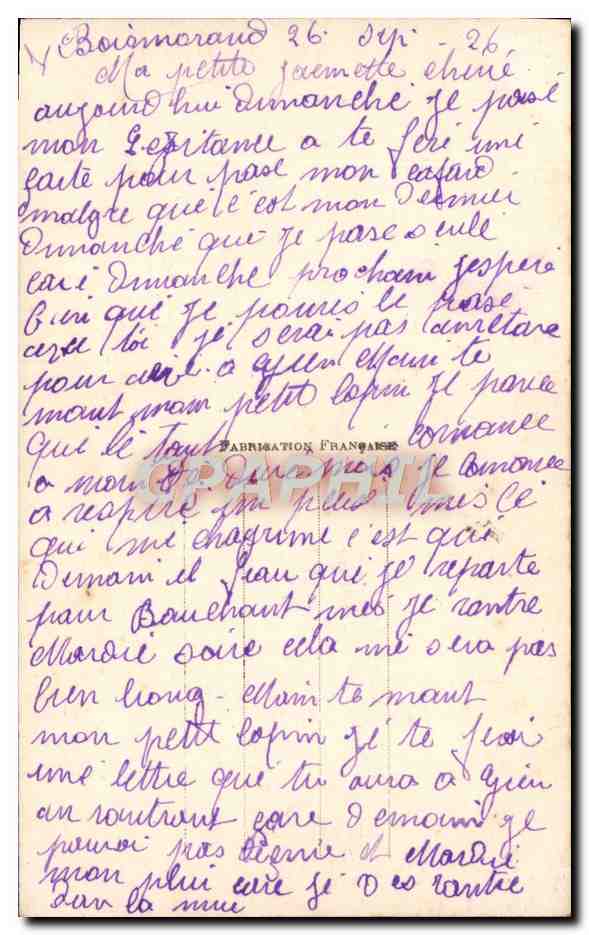 Boismorand 26 Sep - 26
Ma petite Jaennette cheri
aujourd hui dimanche je pase
mon a te feri une
carte pour pase mon cafard
malgre que c'est mon dernier
dimanche que je pase seule
care dimanche prochain j'espere
bien que je poures le pase
avec toi je serai pas arretare
pour alle a Gien Main te
nant mon petit lapin je pance
que le tant comance
a mon je comance
a respire un peus mes ce
qui me chagrine c'est que
demain il feau que je reparte
pour Bauchant mes je rantre
Mardie soire cela me sera pas
bien long - Main te nant
mon petit lapin je te ferai
une lettre que tu aura a Gien
an rantrant care demain je
pourai pas et Mardie
non plui care je dis rantre
dan la nui
FABRICATION FRANÇAISE
CPAPHIL